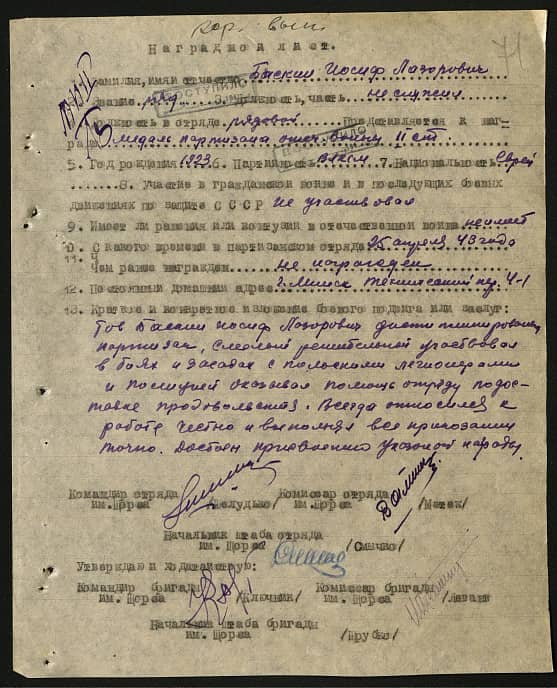 71
Наградной лист.
Фамилия, имя и отчество Баскин Иосиф Лазорович
Звание ряд. 3. Должность, часть не служил
Должность в отряде рядовой Представляется к наг-
раде медаль партизана отеч. войны II ст.
5. Год рождения 1923 6. Партийность ВЛКСМ 7. Национальность Еврей
8. Участие в гражданской войне и в последующих боевых
движениях по защите СССР не участвовал
9. Имеет ли ранения или контузии в отечественной войне не имеет
С какого времени в партизанском отряде 25 апреля 43 года
11. Чем ранее награжден не награжден
12. Постоянный домашний адрес г. Минск пер. 4-1
13. Краткое и конкретное изложение боевого подвига или заслуг:
Тов Баскин Иосиф Лазорович
партизан, смелый решительный участвовал
в боях и засадах с польскими легионерами
и полицией оказывал помощь отряду по дос-
тавке продовольствия. Всегда относился к
работе честно и выполнял все приказания
точно. Достоин присвоению указаной награды
Командир отряда Комиссар отряда
им. Щорса /Шелудько/ им. Щорса /Метек/
Начальник штаба отряда
им. Щорса /Смычко/
Утверждаю и ходатайствую:
Командир бригады Комиссар бригады
им. Щорса /Ключник/ им. Щорса
Начальник штаба бригады
им. Щорса